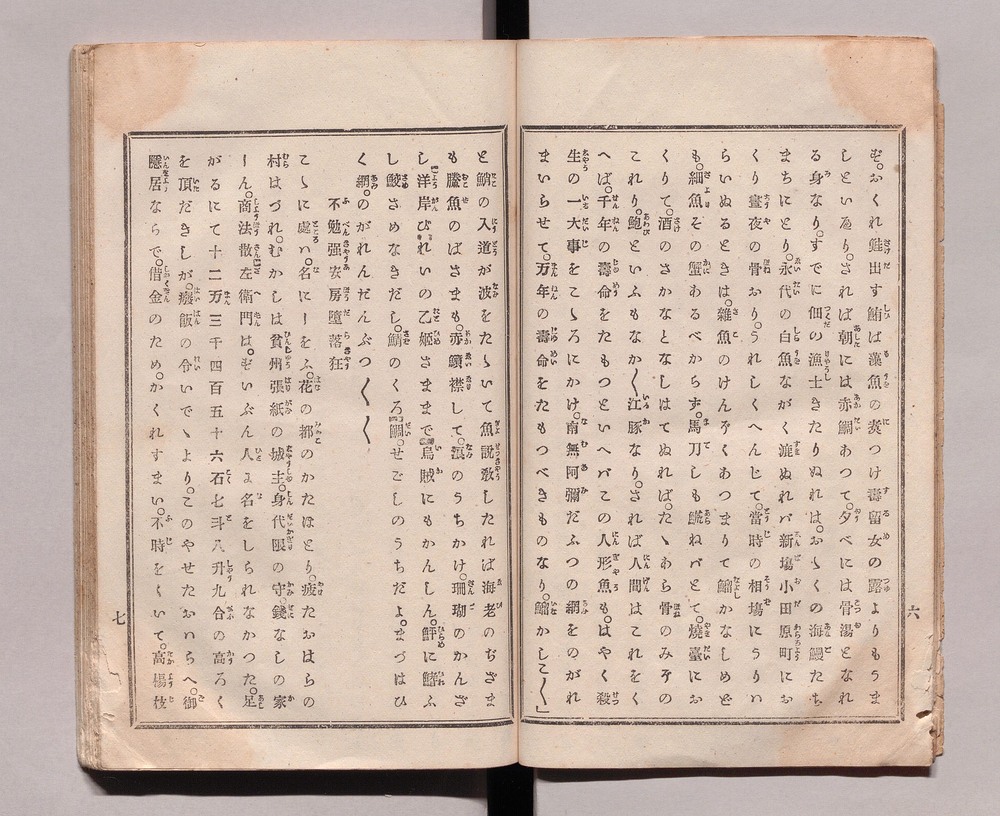 ぞ。おくれ鮭出す鮪ば藻魚の煑つけ壽留女の露よりもうま
しといゐり。されば朝には赤鯛あつて。夕べには骨湯となれ
る身なり。すでに佃の漁士きたりぬれは。おゝくの海鰻たち
まちにとり。永代の白魚ながく漉ぬれバ新塲小田原町にお
くり晝夜の骨おり。うれしくへんじて。當時の相塲にうりい
らいぬるときは。雜魚のけんぞくあつまりて鰯かなしめど
も。細魚その蟹あるべからず。馬刀しも䱋ねバとて。燒臺にお
くりて。酒のさかなとなしはてぬれば。たゝあら骨のみぞの
これり。鮑といふもなか〱江豚なり。されば人間はこれをく
へば。千年の壽命をたもつといへバこの人形魚も。はやく殺
生の一大事をこゝろにかけ。南無阿彌だふつの網をのがれ
まいらせて。万年の壽命をたもつべきものなり。鰯かしこ〱」
六
と鮹の入道が波をたゝいて魚説敎したれば海老のぢざま
も鰧魚のばさまも。赤鱝襟して。浪のうちかけ。珊瑚のかんざ
し。洋岸びれいの乙姬さままで烏賊にもかんしん。鮃に鰭ふ
し鮫さめなきだし。鯖のくろ鯛。せごしのうちだよ。まづはひ
く網。のがれんだんぶつ〱〱
不勉强安房墮落狂
こゝに處ハ。名にーをふ。花の都のかたほとり。疲たおはらの
村はづれ。むかしは貧州張紙の城主。身代限の守。錢なしの家
ーん。商法散左衞門は。ぞいぶん人ョ名をしられなかつた。足
がるにて十二万三千四百五十六石七斗八升九合の高ろく
を頂だきしが。癈飯の令いでゝより。このやせたおいらへ。御
隱居ならで。借金のため。かくれすまい。不時をくいて。高楊枝
七